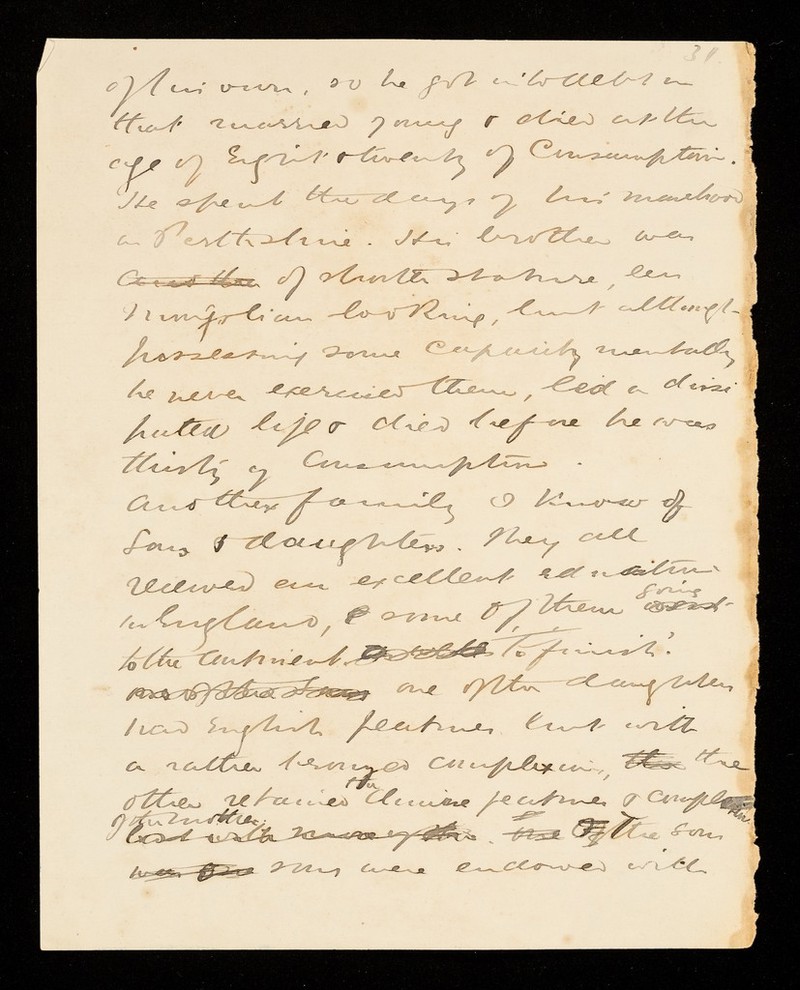 31.
of his own, so he got into debt on
that married young & died at the
age of Eight & twenty of Consumption.
He spent the days of his manhood
in Perthshire. His brother was
another of shorter stature, less
Mongolian looking, but although
possessing some capacity mentally
he never exercised them, led a dissi
pated life & died before he was
thirty of Consumption.
Another family I know of
Sons & daughters. They all
received an excellent education
going
in England, & some of them went
to the Continent as well "to finish".
one of the Sons one of the daughters
had English features but with
a rather bronzed complexion, the the
other retained the Chinese features & complexion
of her mother.
but with more of the. The Of The Sons
was one sons were endowed with